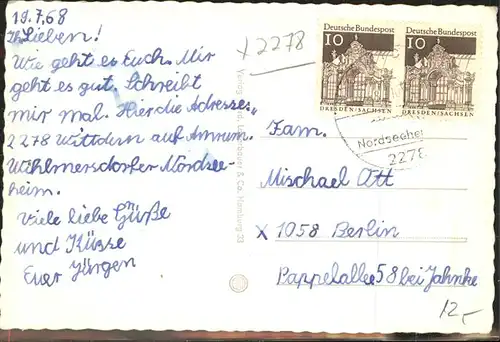 19.7.68
Ihr Lieben!
Wie geht es Euch. Mir
geht es gut. Schreibt
mir mal. Hier die Adresse:
2278 Wittdün auf Amrum.
Wihlmersdorfer Nordsee-
heim.
Viele liebe Güße
und Küsse
Euer Jürgen
x 2278
Deutsche Bundespost
10
DRESDEN/SACHSEN
Deutsche Bundespost
10
DRESDEN/SACHSEN
Nordseehei
2278
Fam.
Mischael Ott
x 1058 Berlin
Pappelallee 58 bei Jahnke
12,-
& Co., Hamburg 33